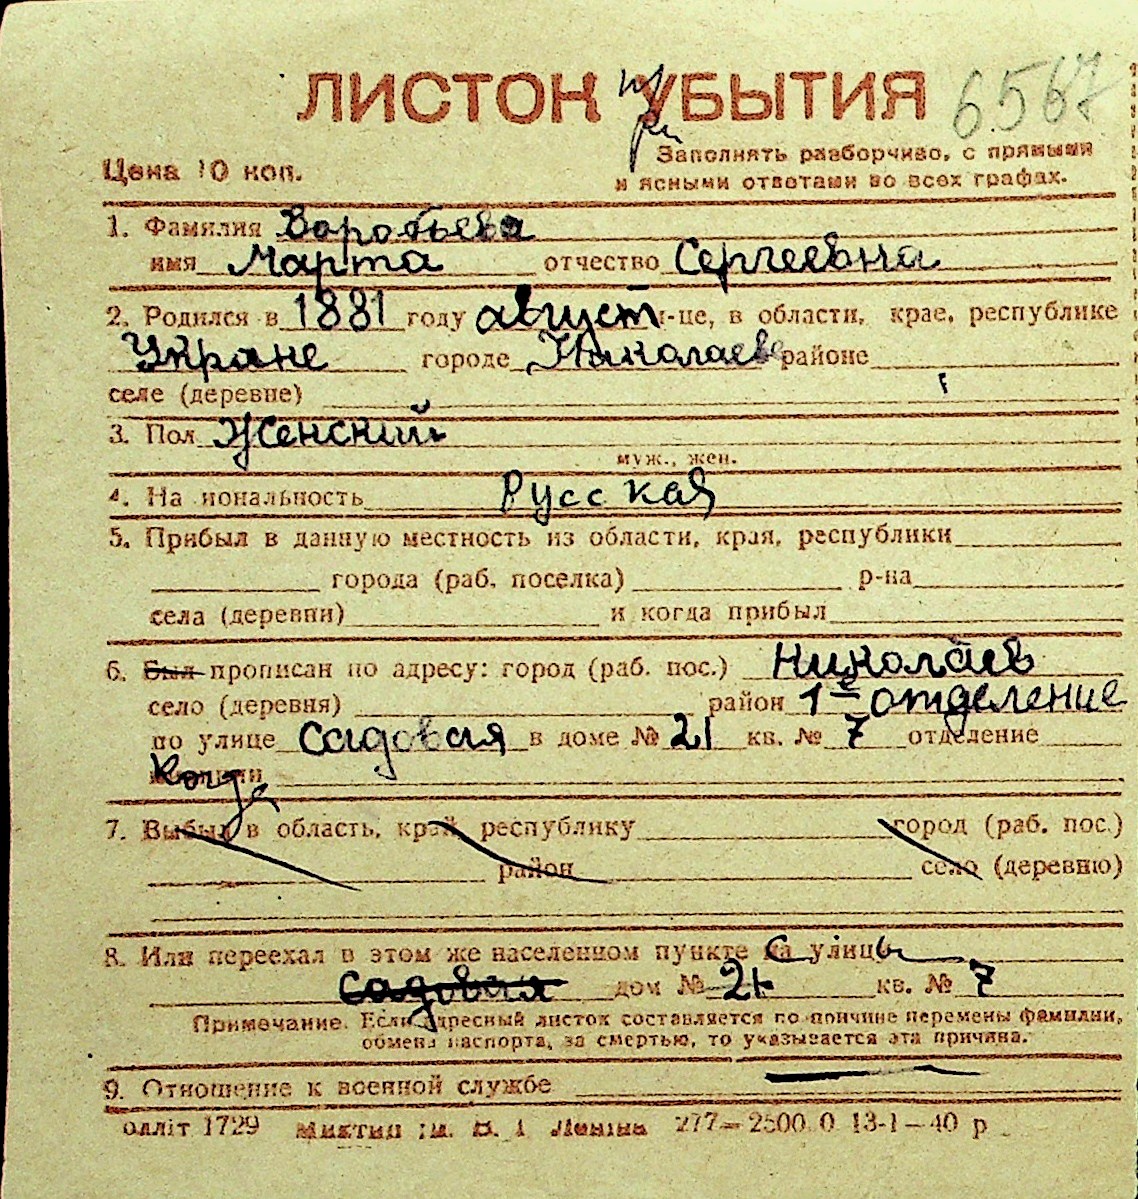 ЛИСТОК УБЫТИЯ 6567
при
Заполнять разборчиво, с прямыми
Цена 10 коп. и ясными ответами во всех графах.
1. Фамилия Воробьева
имя Марта отчество Сергеевна
2. Родился в 1881 году август м-це, в области, крае, республике
Укране городе Николаеве районе
селе (деревне)
3. Пол Женский
муж., жен.
4. Национальность Русская
5. Прибыл в данную местность из области, края, республики
города (раб. поселка) р-на
села (деревни) и когда прибыл
6. Был прописан по адресу: город (раб. пос.) Николаев
село (деревня) район 1е отделение
по улице садовая в доме № 21 кв. № 7 отделение
Когда
7. Выбыл в область, край, республику город (раб. пос.)
район село (деревню)
8. Или переехал в этом же населенном пункте с улицы
садовая дом № 21 кв. № 7
Примечание. Если адресный листок составляется по причине перемены фамилии,
обмена паспорта, за смертью, то указывается эта причина.
9. Отношение к военной службе
олліт 1729 ім. В. І Леніна 277—2500.0 13-1—40 р